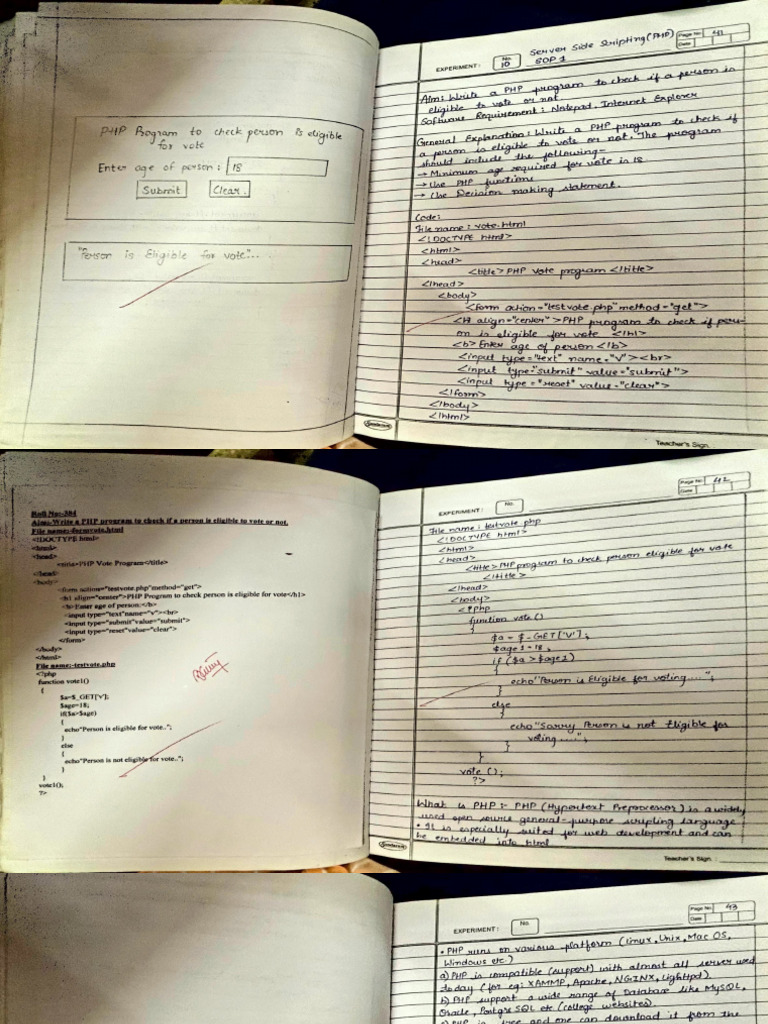 PHP Program to check person is eligible
for vote
Enter age of person: 18
Submit Clear.
"Person is Eligible for vote"....
EXPERIMENT: No. 10 Server Side Scripting (PHP)
SOP 1
Page No. 41
Date
Aim: Write a PHP program to check if a person is
eligible to vote or not.
Software Requirement: Notepad, Internet Explorer
General Explanation: Write a PHP program to check if
a person is eligible to vote or not. The program
should include the following-
→ Minimum age required for vote is 18
→ Use PHP functions
→ Use Decision making statement.
Code:
File name: vote.html
<!DOCTYPE html>
<html>
<head>
<title> PHP vote program </title>
</head>
<body>
<form action="testvote.php" method="get">
<h1 align="center">PHP program to check if pers-
on is eligible for vote </h1>
<b> Enter age of person </b>
<input type="text" name="v"><br>
<input type="submit" value="submit">
<input type="reset" value="clear">
</form>
</body>
</html>
Sundaram
Teacher's Sign.:
Roll No:-384
Aim:-Write a PHP program to check if a person is eligible to vote or not.
File name:-formvote.html
<!DOCTYPE html>
<html>
<head>
<title>PHP Vote Program</title>
</head>
<body>
<form action="testvote.php"method="get">
<h1 align="center">PHP Program to check person is eligible for vote</h1>
<b>Enter age of person:</b>
<input type="text"name="v"><br>
<input type="submit"value="submit">
<input type="reset"value="clear">
</form>
</body>
</html>
File name:-testvote.php
<?php
function vote1()
{
$a=$_GET['v'];
$age=18;
if($a>$age)
{
echo"Person is eligible for vote..";
}
else
{
echo"Person is not eligible for vote..";
}
}
vote1();
?>
EXPERIMENT: No.
Page No. 42
Date
File name: testvote php
<!DOCTYPE html>
<html>
<head>
<title>PHP program to check person eligible for vote
</title>
</head>
<body>
<?php
function vote()
{
$a = $_GET['v'];
$age1=18,
if ($a > $age1)
{
echo"Person is Eligible for voting....";
}
else
{
echo "Sorry Person is not Eligible for
voting....";
}
}
vote ();
?>
What is PHP :- PHP (Hypertext Preprocessor) is a widely
used open source general-purpose scripting language
• It is especially suited for web development and can
be embedded into html
Sundaram
Teacher's Sign.:
EXPERIMENT: No.
Page No. 43
Date
• PHP runs on various platform (Linux, Unix, Mac OS,
Windows etc.)
a) PHP is compatible (support) with almost all server used
today (for eg: XAMMP, Apache, NGINX, Lighttpd).
b) PHP support a wide range of Database like MySQL,
Oracle, PostgreSQL etc (college websites).
free and one can download it from the